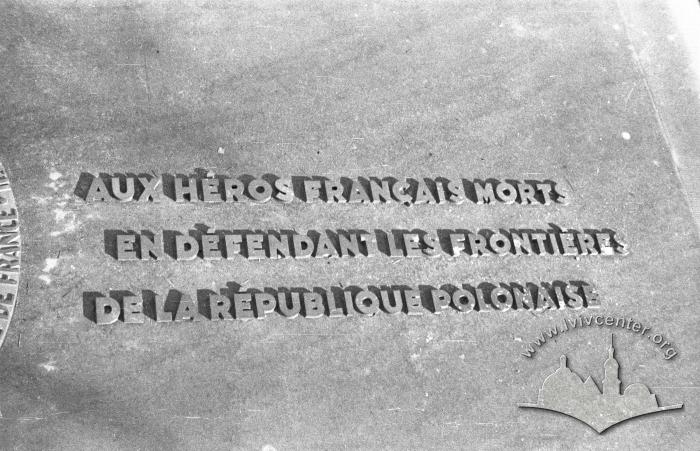 AUX HÉROS FRANÇAIS MORTS
EN DÉFENDANT LES FRONTIÈRES
DE LA RÉPUBLIQUE POLONAISE
DE FRANCE
www.lvivcenter.org